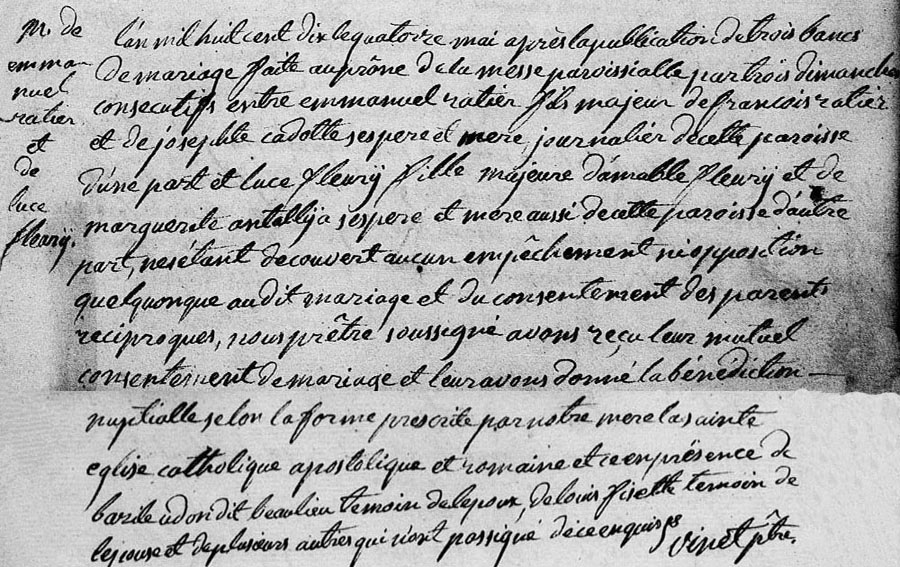 M. de
emma-
nuel
ratier
et
de
luce
fleury.
l'an mil huit cent dix le quatorze mai après la publication de trois bancs
de mariage faite au prône de la messe paroissialle par trois dimanches
consecutifs entre emmanuel ratier fils majeur de francois ratier
et de josephte cadotte ses pere et mere, journalier de cette paroisse
d'une part et luce fleury fille majeure d'amable fleury et de
marguerite antallyja ses pere et mere aussi de cette paroisse d'autre
part, ne s'étant decouvert aucun empêchement ni opposition
quelquonque au dit mariage et du consentement des parents
reciproques, nous prêtre soussigné avons reçu leur mutuel
consentement de mariage et leur avons donné la bénédiction
nuptialle selon la forme prescrite par notre mere la sainte
eglise catholique apostolique et romaine et ce en présence de
bazile udon dit beaulieu temoin de lepoux, de louis fisette temoin de
lepouse et de plusieurs autres qui n'ont pas signé de ce enquis
vinet ptre.